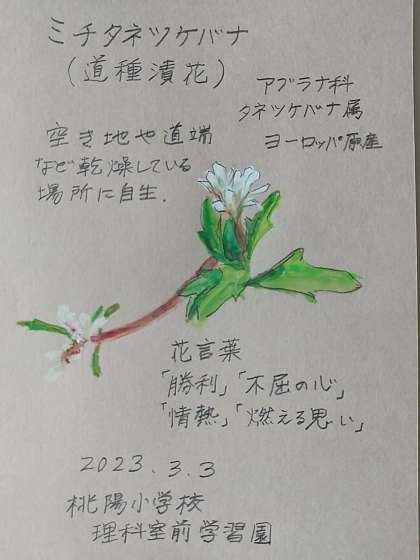 ミチタネツケバナ
(道種漬花)
アブラナ科
タネツケバナ属
ヨーロッパ原産
空き地や道端
など乾燥している
場所に自生.
花言葉
「勝利」「不屈の心」
「情熱」「燃える思い」
2023.3.3
桃陽小学校
理科室前学習園